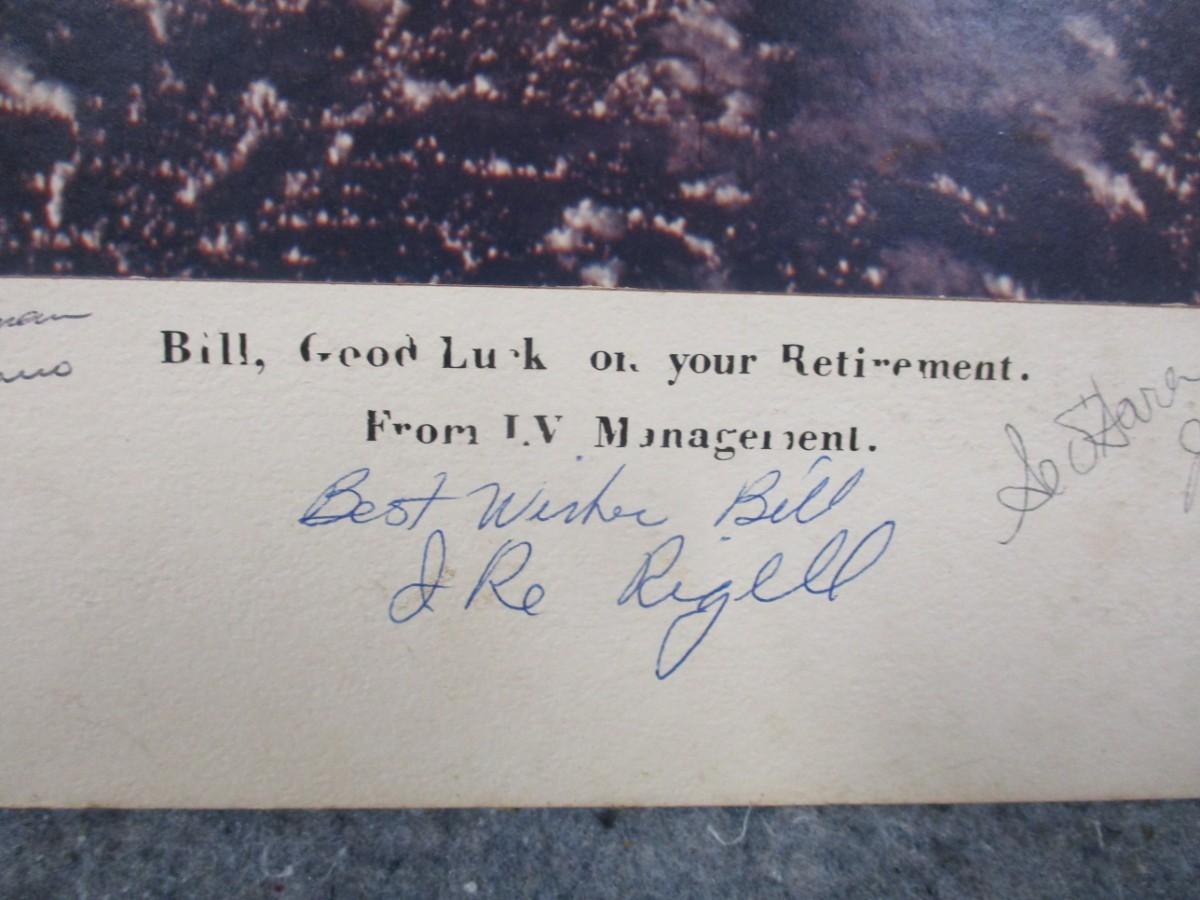 Bill, Good Luck on your Retirement.
From LV Management.
Best Wishes Bill
I Re Rigell